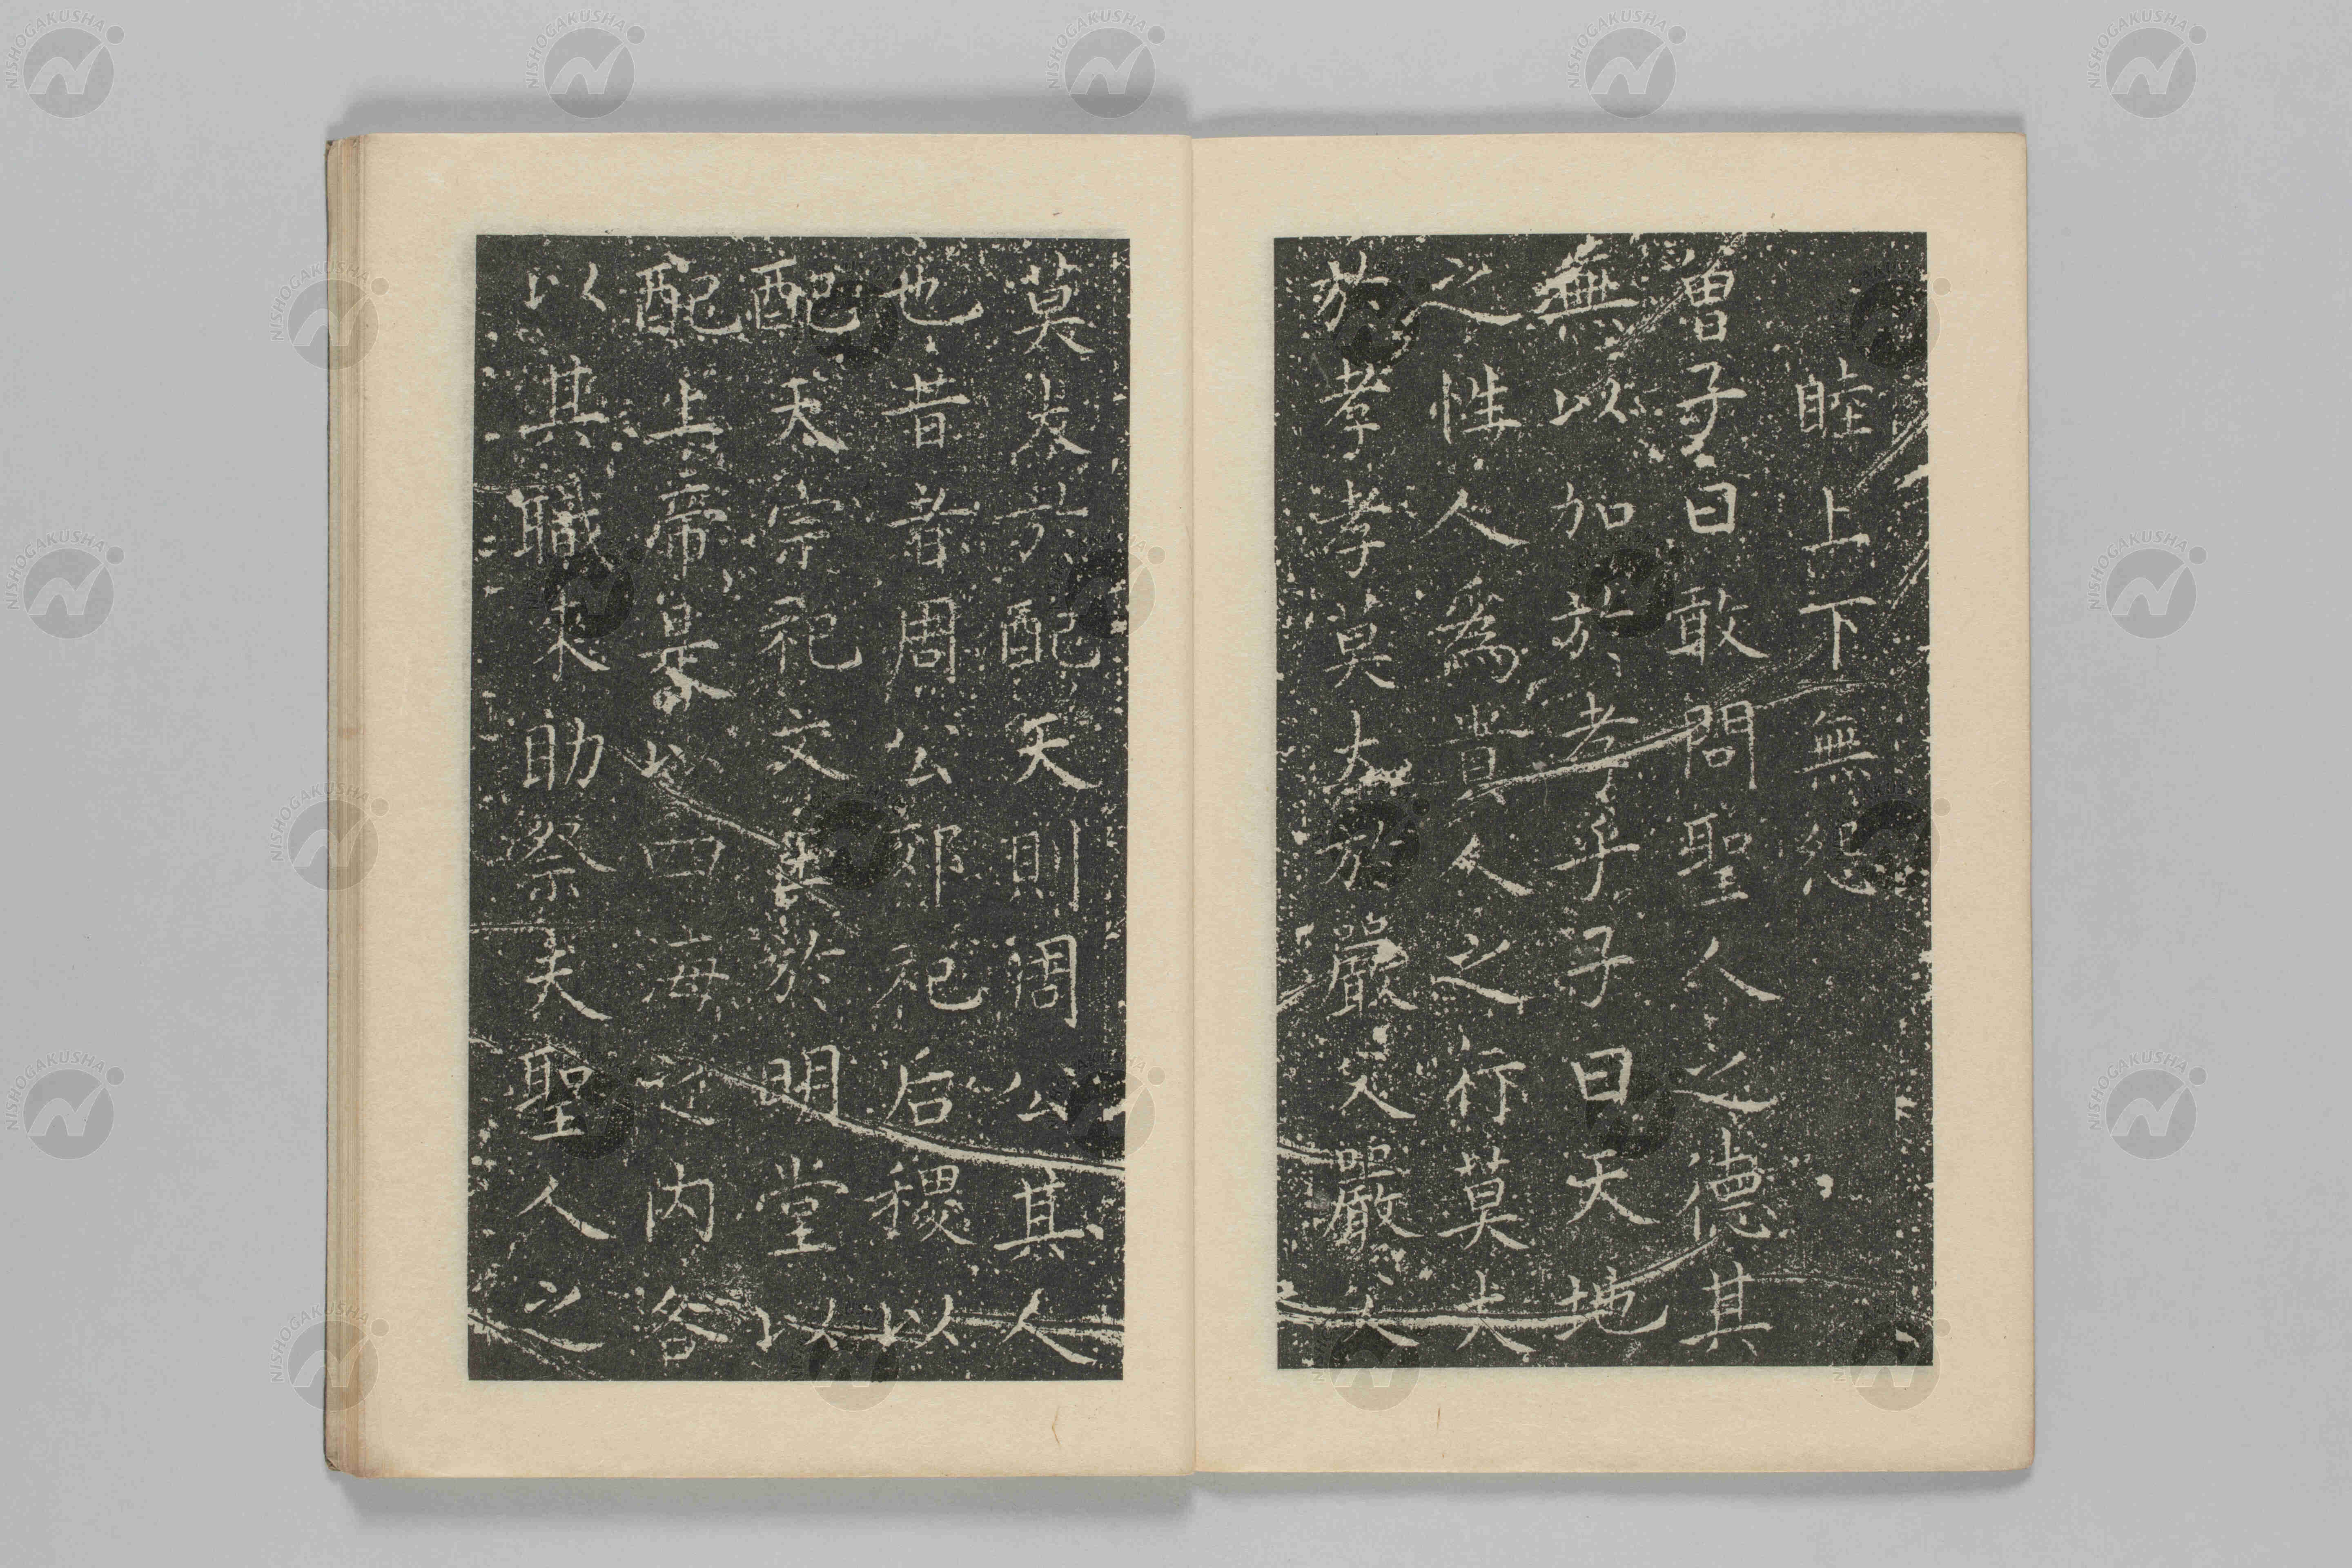 睦上下無怨
曾子曰敢問聖人之德其
無以加於孝乎子曰天地
之性人為貴人之行莫大
於孝孝莫大於嚴父嚴父
莫大於配天則周公其人
也昔者周公郊祀后稷以
配天宗祀文王於明堂以
配上帝是以四海之內各
以其職來助祭夫聖人之
NISHOGAKUSHA